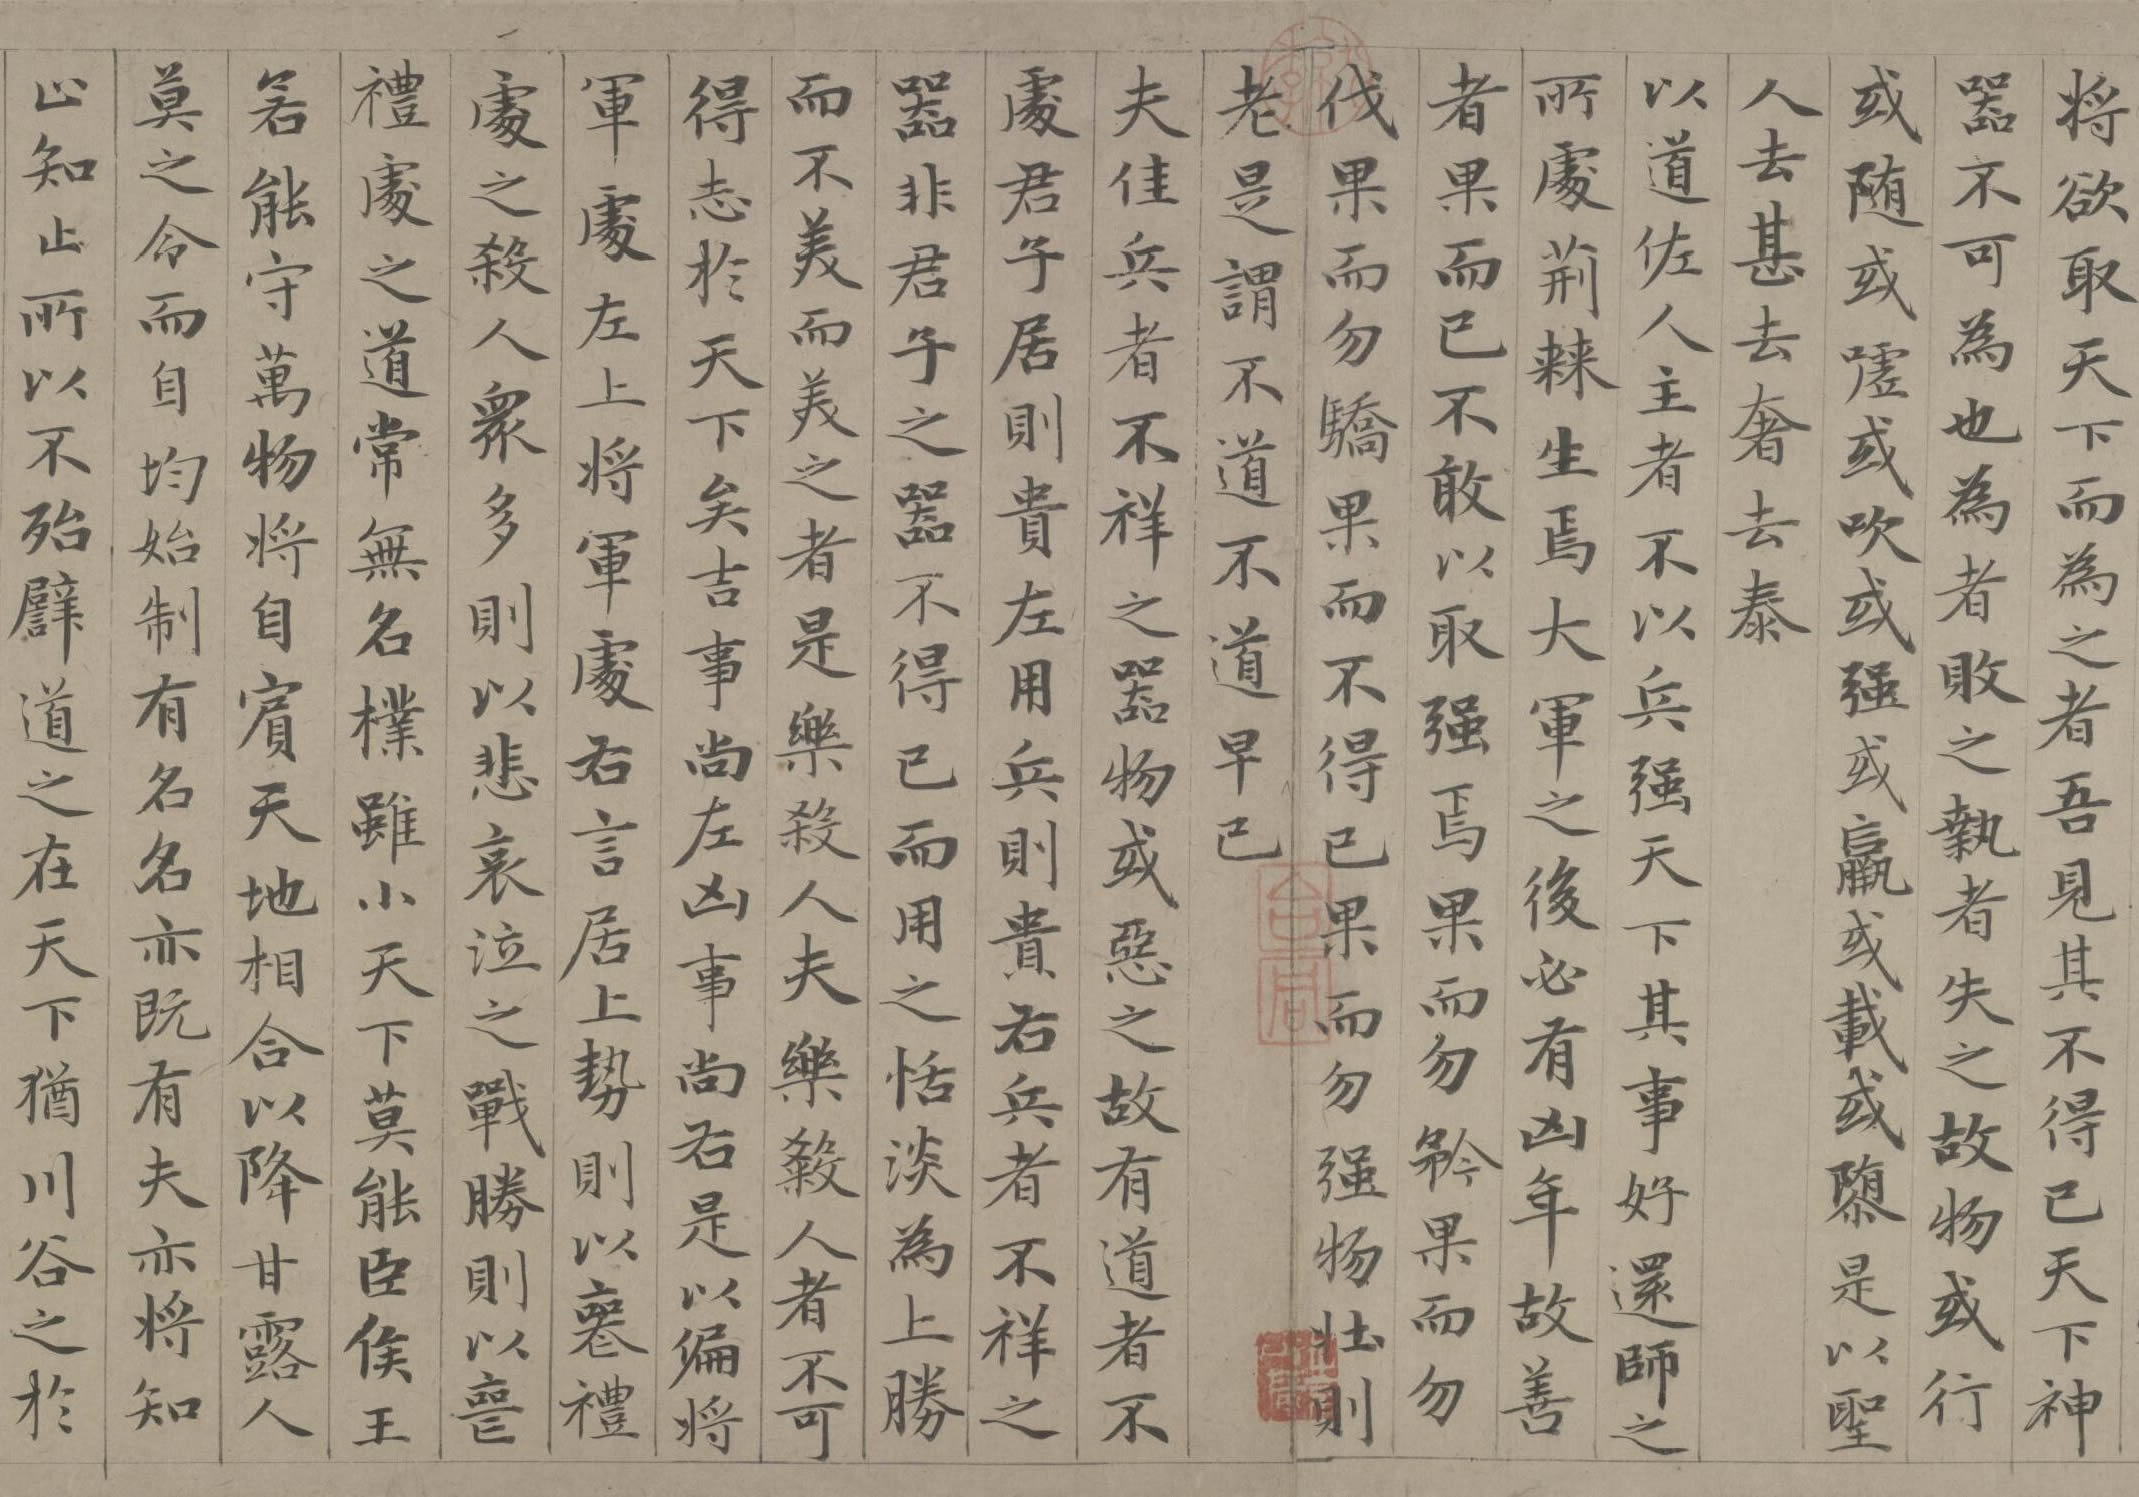 將欲取天下而為之者吾見其不得已天下神
器不可為也為者敗之執者失之故物或行
或随或嘘或吹或强或羸或載或隳是以聖
人去甚去奢去泰
以道佐人主者不以兵强天下其事好還師之
所處荊棘生焉大軍之後必有凶年故善
者果而已不敢以取强焉果而勿矜果而勿
伐果而勿驕果而不得已果而勿强物壯則
老是謂不道不道早已
夫佳兵者不祥之器物或惡之故有道者不
處君子居則貴左用兵則貴右兵者不祥之
器非君子之器不得已而用之恬淡為上勝
而不美而美之者是樂殺人夫樂殺人者不可
得志於天下矣吉事尚左凶事尚右是以偏將
軍處左上將軍處右言居上勢則以喪禮
處之殺人衆多則以悲哀泣之戰勝則以喪
禮處之道常無名樸雖小天下莫能臣侯王
若能守萬物將自賓天地相合以降甘露人
莫之令而自均始制有名名亦既有夫亦將知
止知止所以不殆譬道之在天下猶川谷之於